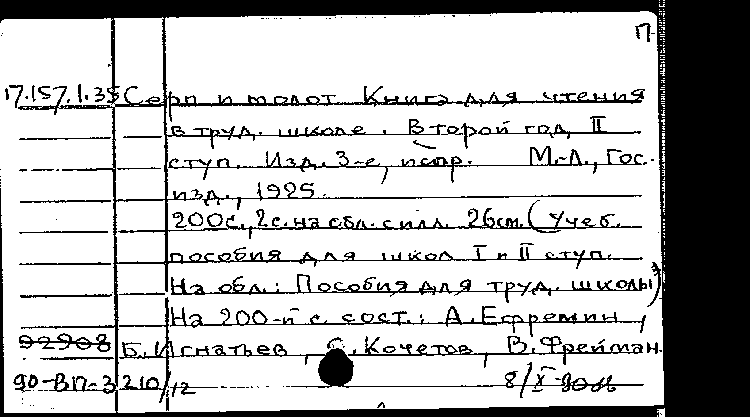 П
17.157.1.35 Серп и молот Книга для чтения
в труд. школе. Второй год II
ступ. Изд. 3-е, испр. М.-Л., Гос.
изд., 1925.
200с., 2с. на обл. с илл. 26см. (Учеб.
пособия для школ I и II ступ.
На обл.: Пособия для труд. школы)
На 200-й с. сост.: А. Ефремин,
92908 Б. Игнатьев, С. Кочетов, В. Фрейман
90-ВП-3 210/12 8/X-90